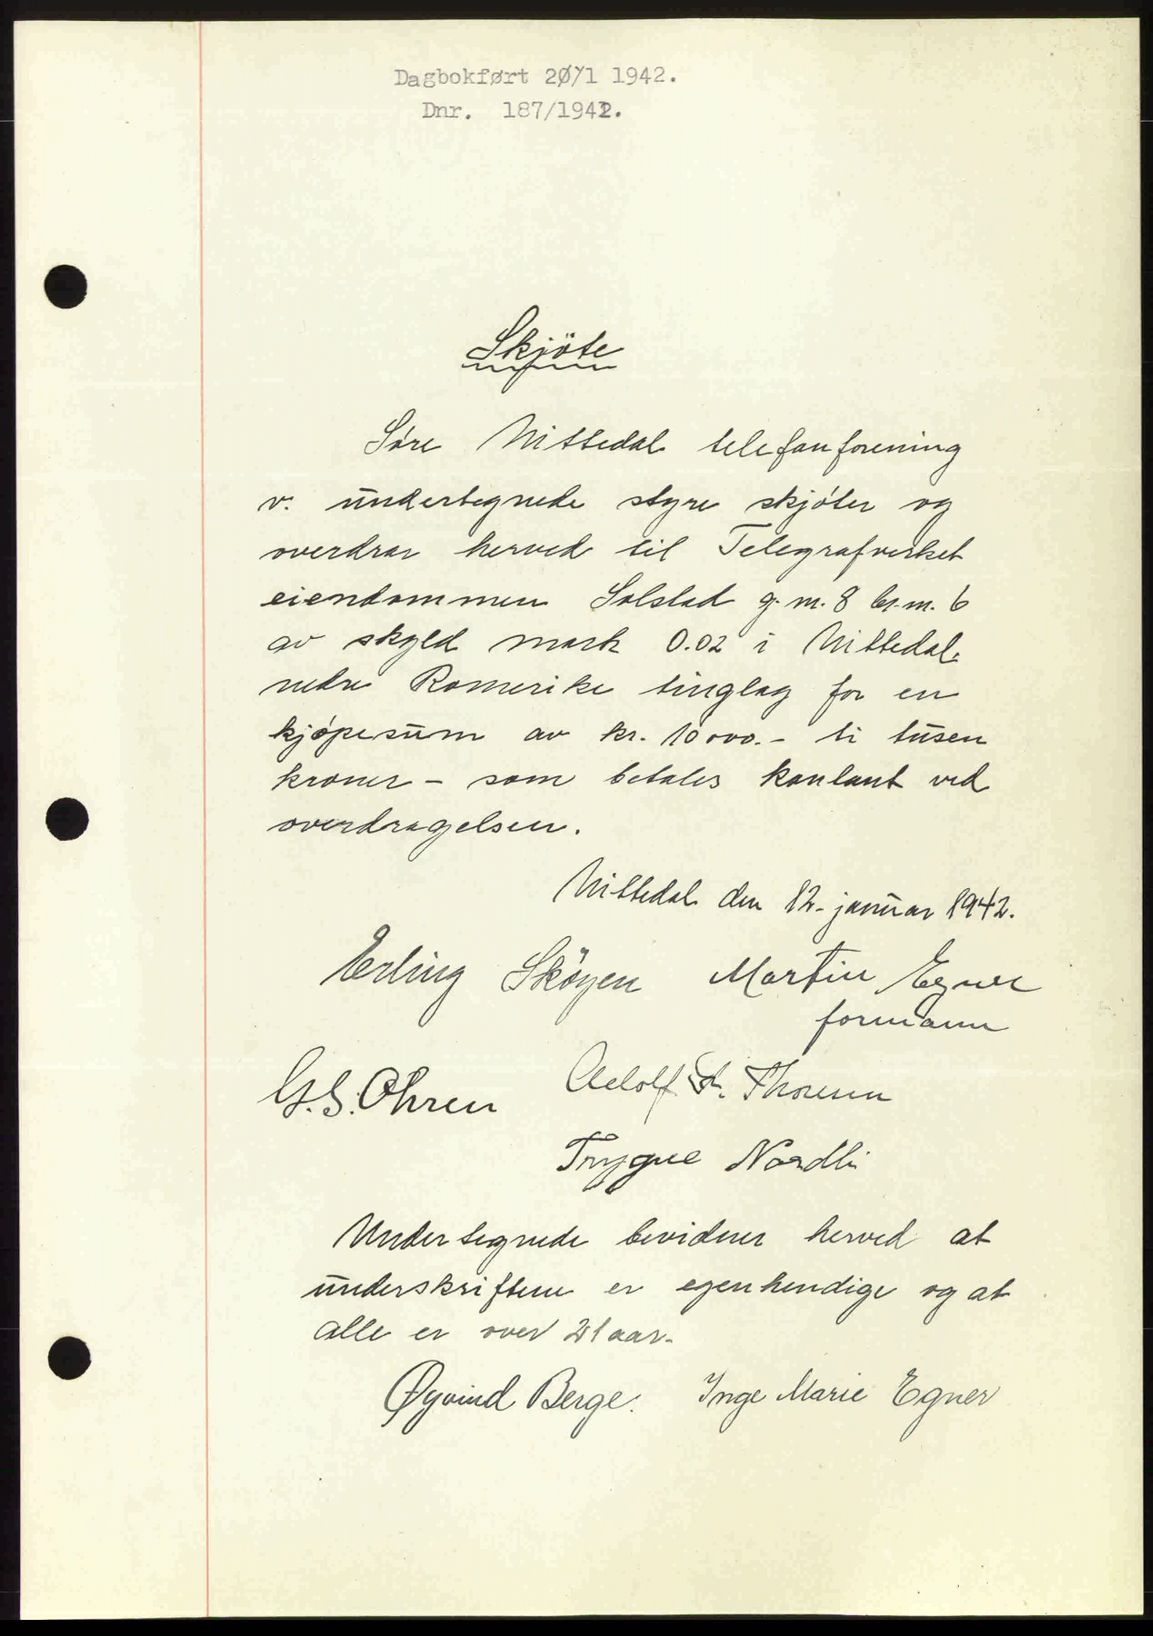 Dagbokført 20/1 1942.
Dnr. 187/1942.
Skjöte
Søre Nittedal telefonforening
v. undertegnede styre skjøter og
overdrar herved til Telegrafverket
eiendommen Solstad g.m. 8 br.m. 6
av skyld mark 0.02 i Nittedal
nedre Romerike tinglag for en
kjøpesum av kr. 10000.- ti tusen
kroner - som betales kontant ved
overdragelsen.
Nittedal den 12. januar 1942.
Erling Sköyen Martin Egner
formann
G.S. Ohren Adolf Thoresen
Trygve Nordli
Undertegnede bevidner herved at
underskriftene er egenhendige og at
alle er over 21 aar.
Øyvind Berge. Inge Marie Egner